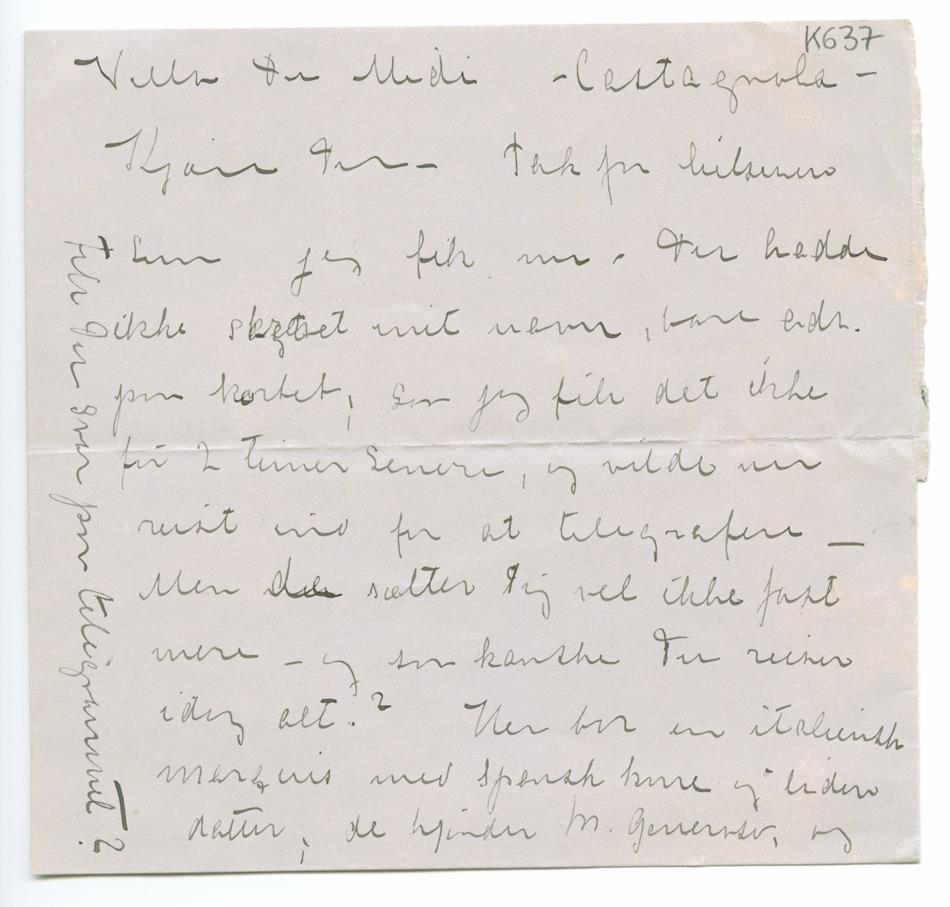 K637
Villa Du Midi - Castagnola -
Kjære Du - Tak for hilsenen
som jeg fik nu - Du hadde
ikke skrevet mit navn, bare adr.
paa kortet, saa jeg fik det ikke
før 2 timer senere, og vilde nu
reist ind for at telegrafere -
Men det sætter dig vel ikke fast
mere - og saa kanske Du reiser
idag alt.? Her bor en italiensk
marquis med spansk kone og liden
datter, de kjender M. Generoso, og
fik Du svar paa telegrammet?